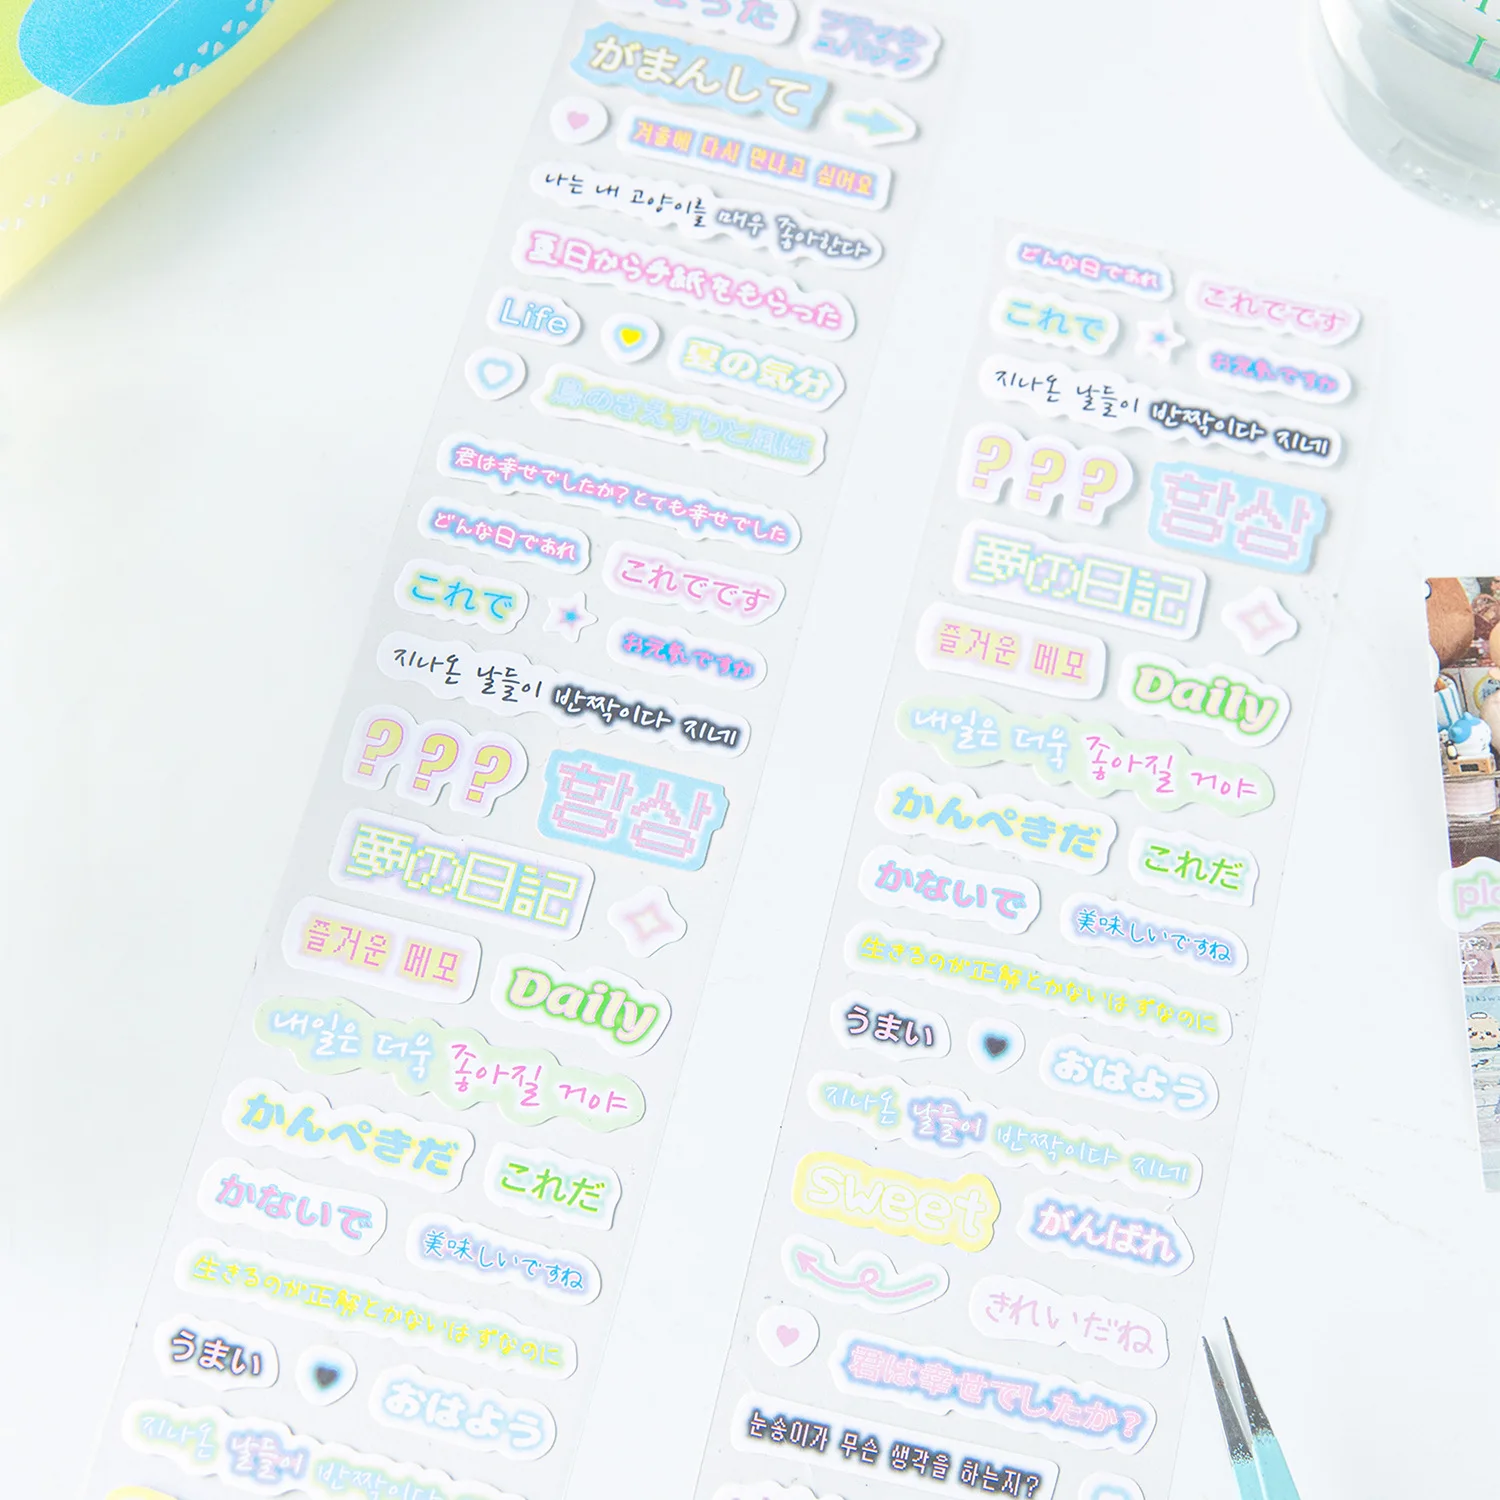 がまんして
겨울에 다시 만나고 싶어요
나는 내 고양이를 매우 좋아한다
夏日から手紙をもらった
Life
夏の気分
鳥のさえずりと風は
君は幸せでしたか?とても幸せでした
どんな日であれ
これでです
これで
お元気ですか
지나온 날들이 반짝이다 지네
???
항상
夢の日記
즐거운 메모
Daily
내일은 더욱 좋아질 거야
かんぺきだ
これだ
かないで
美味しいですね
生きるのが正解とかないはずなのに
うまい
おはよう
지나온 날들이 반짝이다
どんな日であれ
これでです
これで
お元気ですか
지나온 날들이 반짝이다 지네
???
항상
夢の日記
즐거운 메모
Daily
내일은 더욱 좋아질 거야
かんぺきだ
これだ
かないで
美味しいですね
生きるのが正解とかないはずなのに
うまい
おはよう
지나온 날들이 반짝이다 지네
sweet
がんばれ
きれいだね
君は幸せでしたか?
눈송이가 무슨 생각을 하는지?